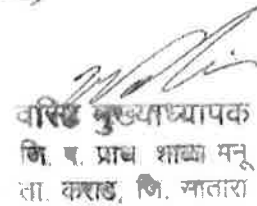 वरिष्ठ मुख्याध्यापक
जि. प. प्राथ शाळा मनू
ता. कराड, जि. सातारा